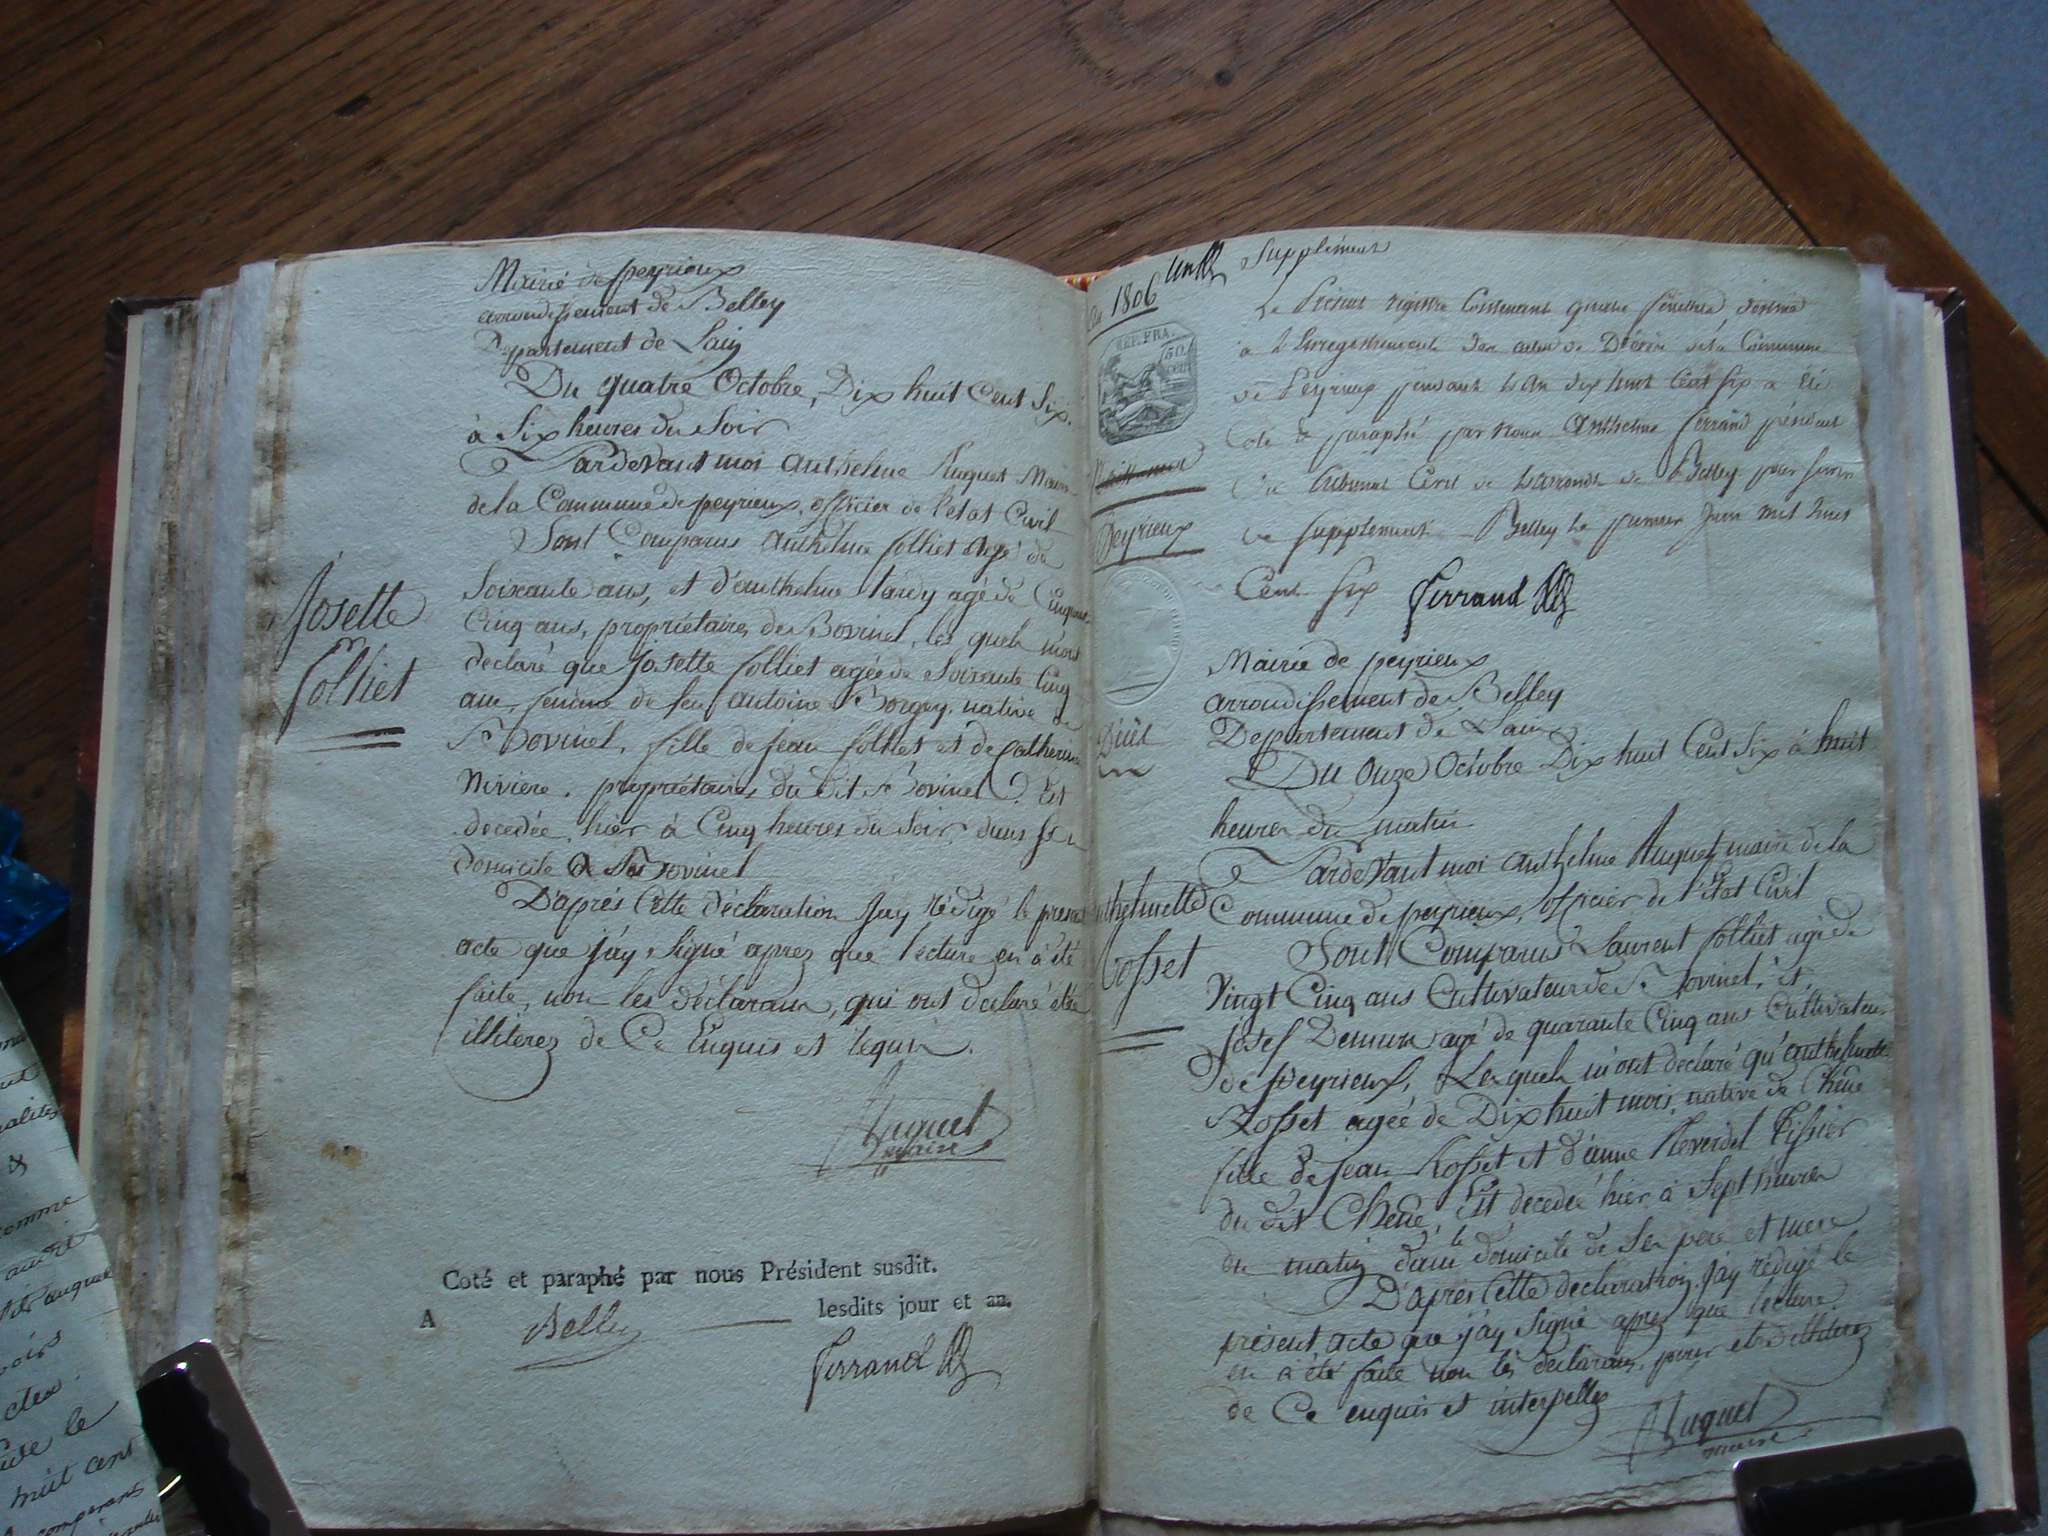 Mairie de peyrieux
arrondissement de Belley
Departement de Lain
Du quatre Octobre, Dix huit Cent Six,
à Six heures du Soir
Pardevant moi anthelme huguet Maire
de la Commune de peyrieux, officier de l'état Civil
Sont Comparus anthelme folliet agé de
Soixante ans, et d'anthelme tardy agé de Cinquante
Cinq ans, propriétaires de St Bovinel, les quels m'ont
declaré que Josette folliet agée de Soixante Cinq
ans, femme de feu antoine Borgey, native de
St Bovinel, fille de jean folliet et de Catherine
Niviere, propriétaires du dit St Bovinel. Est
decedée hier à Cinq heures du Soir dans son
domicile a St Bovinel
D'après Cette déclaration J'ay rédigé le present
acte que j'ay Signé apres que lecture en à été
faite, non les déclarans, qui ont declaré être
illiterez de Ce Enquis et requis.
Huguet
maire
Josette
folliet
Coté et paraphé par nous Président susdit.
A Belley lesdits jour et an.
Ferrand
an 1806
Supplément
REP. FRA.
50
cent
Peyrieux
Le Présent registre Contenant quatre feuillets, destiné
à l'Enregistrement des actes de Décès de la Commune
de Peyrieux pendant l'an dix huit Cent six a été
coté & paraphé par nous Anthelme ferrand président
du tribunal Civil de L'arrondt de Belley pour servir
de supplement Belley le premier Juin mil huit
Cent six Ferrand
Mairie de peyrieux
arrondissement de Belley
Departement de Lain
Du Onze Octobre Dix huit Cent Six à huit
heures du matin
Pardevant moi anthelme huguet maire de la
Commune de peyrieux, officier de l'état Civil
Sont Comparus Laurent folliet agé de
Vingt Cinq ans Cultivateur de St Bovinel, et
Josef Demura agé de quarante Cinq ans Cultivateur
de peyrieux, Lesquels m'ont declaré qu'anthelmette
Rosset agée de Dix huit mois, native de Chêne
fille de jean Rosset et d'anne Reverdel Tissier
du dit Chêne, Est decedée hier à Sept heures
du matin dans le domicile de Ses pere et mere
D'après Cette declaration J'ay rédigé le
présent acte que j'ay Signé apres que lecture
en à été faite non les declarans, pour être illiterez
de Ce enquis et interpellez
Huguet
maire
Anthelmette
Rosset